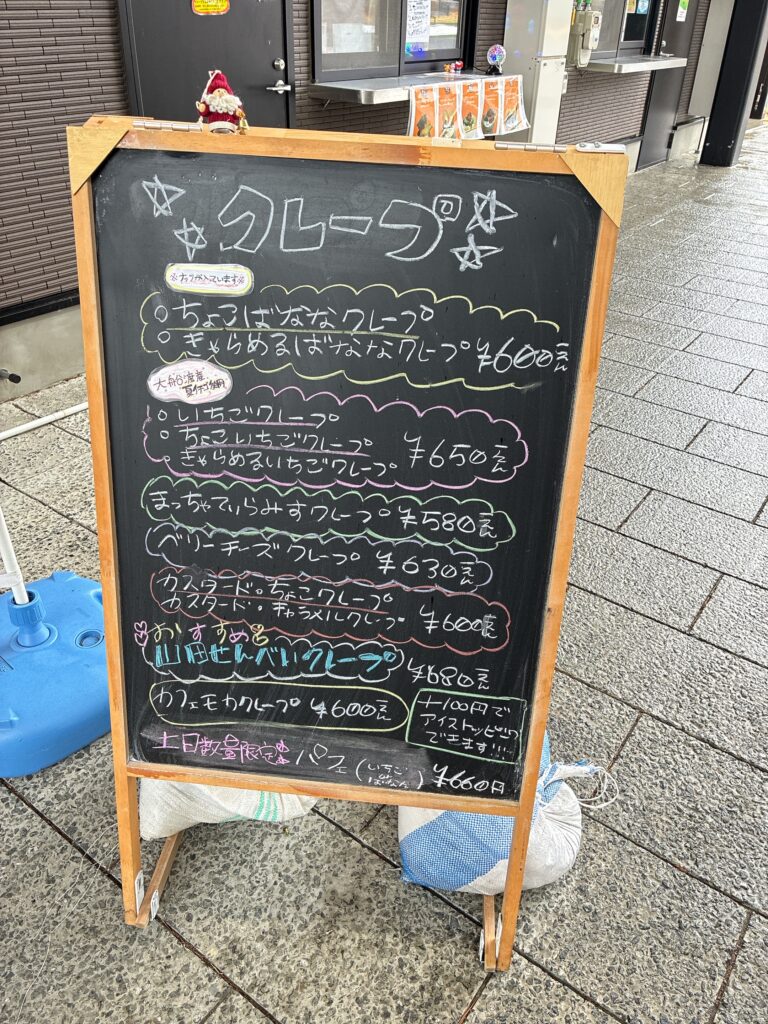 クレープ
※ナッツが入っています※
○ちょこばななクレープ
○きゃらめるばななクレープ ¥600えん
大船渡産
夏イチゴ
○いちごクレープ
○ちょこいちごクレープ ¥650えん
○きゃらめるいちごクレープ
まっちゃてぃらみすクレープ ¥580えん
ベリーチーズクレープ ¥630えん
カスタード・ちょこクレープ
カスタード・キャラメルクレープ ¥600えん
おすすめ
山田せんべいクレープ ¥680えん
カフェモカクレープ ¥600えん
+100円で
アイストッピング
できます!!!
土日数量限定 パフェ(いちご or ばなな) ¥660円